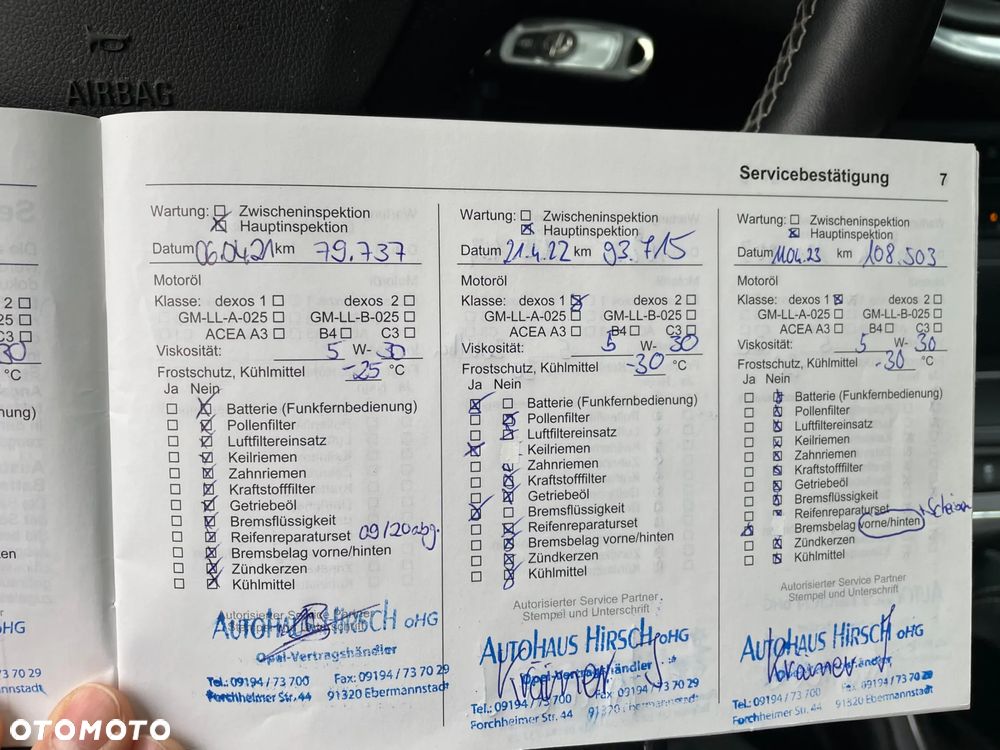 AIRBAG
Servicebestätigung 7
Wartung: Zwischeninspektion
Hauptinspektion
Datum 06.04.21 km 79.737
Motoröl
Klasse: dexos 1 dexos 2
GM-LL-A-025 GM-LL-B-025
ACEA A3 B4 C3
Viskosität: 5 W- 30
Frostschutz, Kühlmittel -25 °C
Ja Nein
Batterie (Funkfernbedienung)
Pollenfilter
Luftfiltereinsatz
Keilriemen
Zahnriemen
Kraftstofffilter
Getriebeöl
Bremsflüssigkeit
Reifenreparaturset 09/20 abg.
Bremsbelag vorne/hinten
Zündkerzen
Kühlmittel
Autorisierter Service Partner
AUTOHAUS HIRSCH OHG
Opel-Vertragshändler
Tel.: 09194 / 73 700 Fax: 09194 / 73 70 29
Forchheimer Str. 44 91320 Ebermannstadt
Wartung: Zwischeninspektion
Hauptinspektion
Datum 21.4.22 km 93.715
Motoröl
Klasse: dexos 1 dexos 2
GM-LL-A-025 GM-LL-B-025
ACEA A3 B4 C3
Viskosität: 5 W- 30
Frostschutz, Kühlmittel -30 °C
Ja Nein
Batterie (Funkfernbedienung)
Pollenfilter
Luftfiltereinsatz
Keilriemen
Zahnriemen
Kraftstofffilter
Getriebeöl
Bremsflüssigkeit
Reifenreparaturset
Bremsbelag vorne/hinten
Zündkerzen
Kühlmittel
Autorisierter Service Partner
Stempel und Unterschrift
AUTOHAUS HIRSCH OHG
Opel-Vertragshändler
Tel.: 09194 / 73 700 Fax 09194 / 73 70 29
Forchheimer Str. 44 91320 Ebermannstadt
Wartung: Zwischeninspektion
Hauptinspektion
Datum 11.04.23 km 108.503
Motoröl
Klasse: dexos 1 dexos 2
GM-LL-A-025 GM-LL-B-025
ACEA A3 B4 C3
Viskosität: 5 W- 30
Frostschutz, Kühlmittel -30 °C
Ja Nein
Batterie (Funkfernbedienung)
Pollenfilter
Luftfiltereinsatz
Keilriemen
Zahnriemen
Kraftstofffilter
Getriebeöl
Bremsflüssigkeit
Reifenreparaturset
Bremsbelag vorne/hinten + Scheiben
Zündkerzen
Kühlmittel
Autorisierter Service Partner
Stempel und Unterschrift
AUTOHAUS HIRSCH OHG
Tel.: 09194 / 73 700 09194 / 73 70 29
Forchheimer Str. 44 91320 Ebermannstadt
OTOMOTO